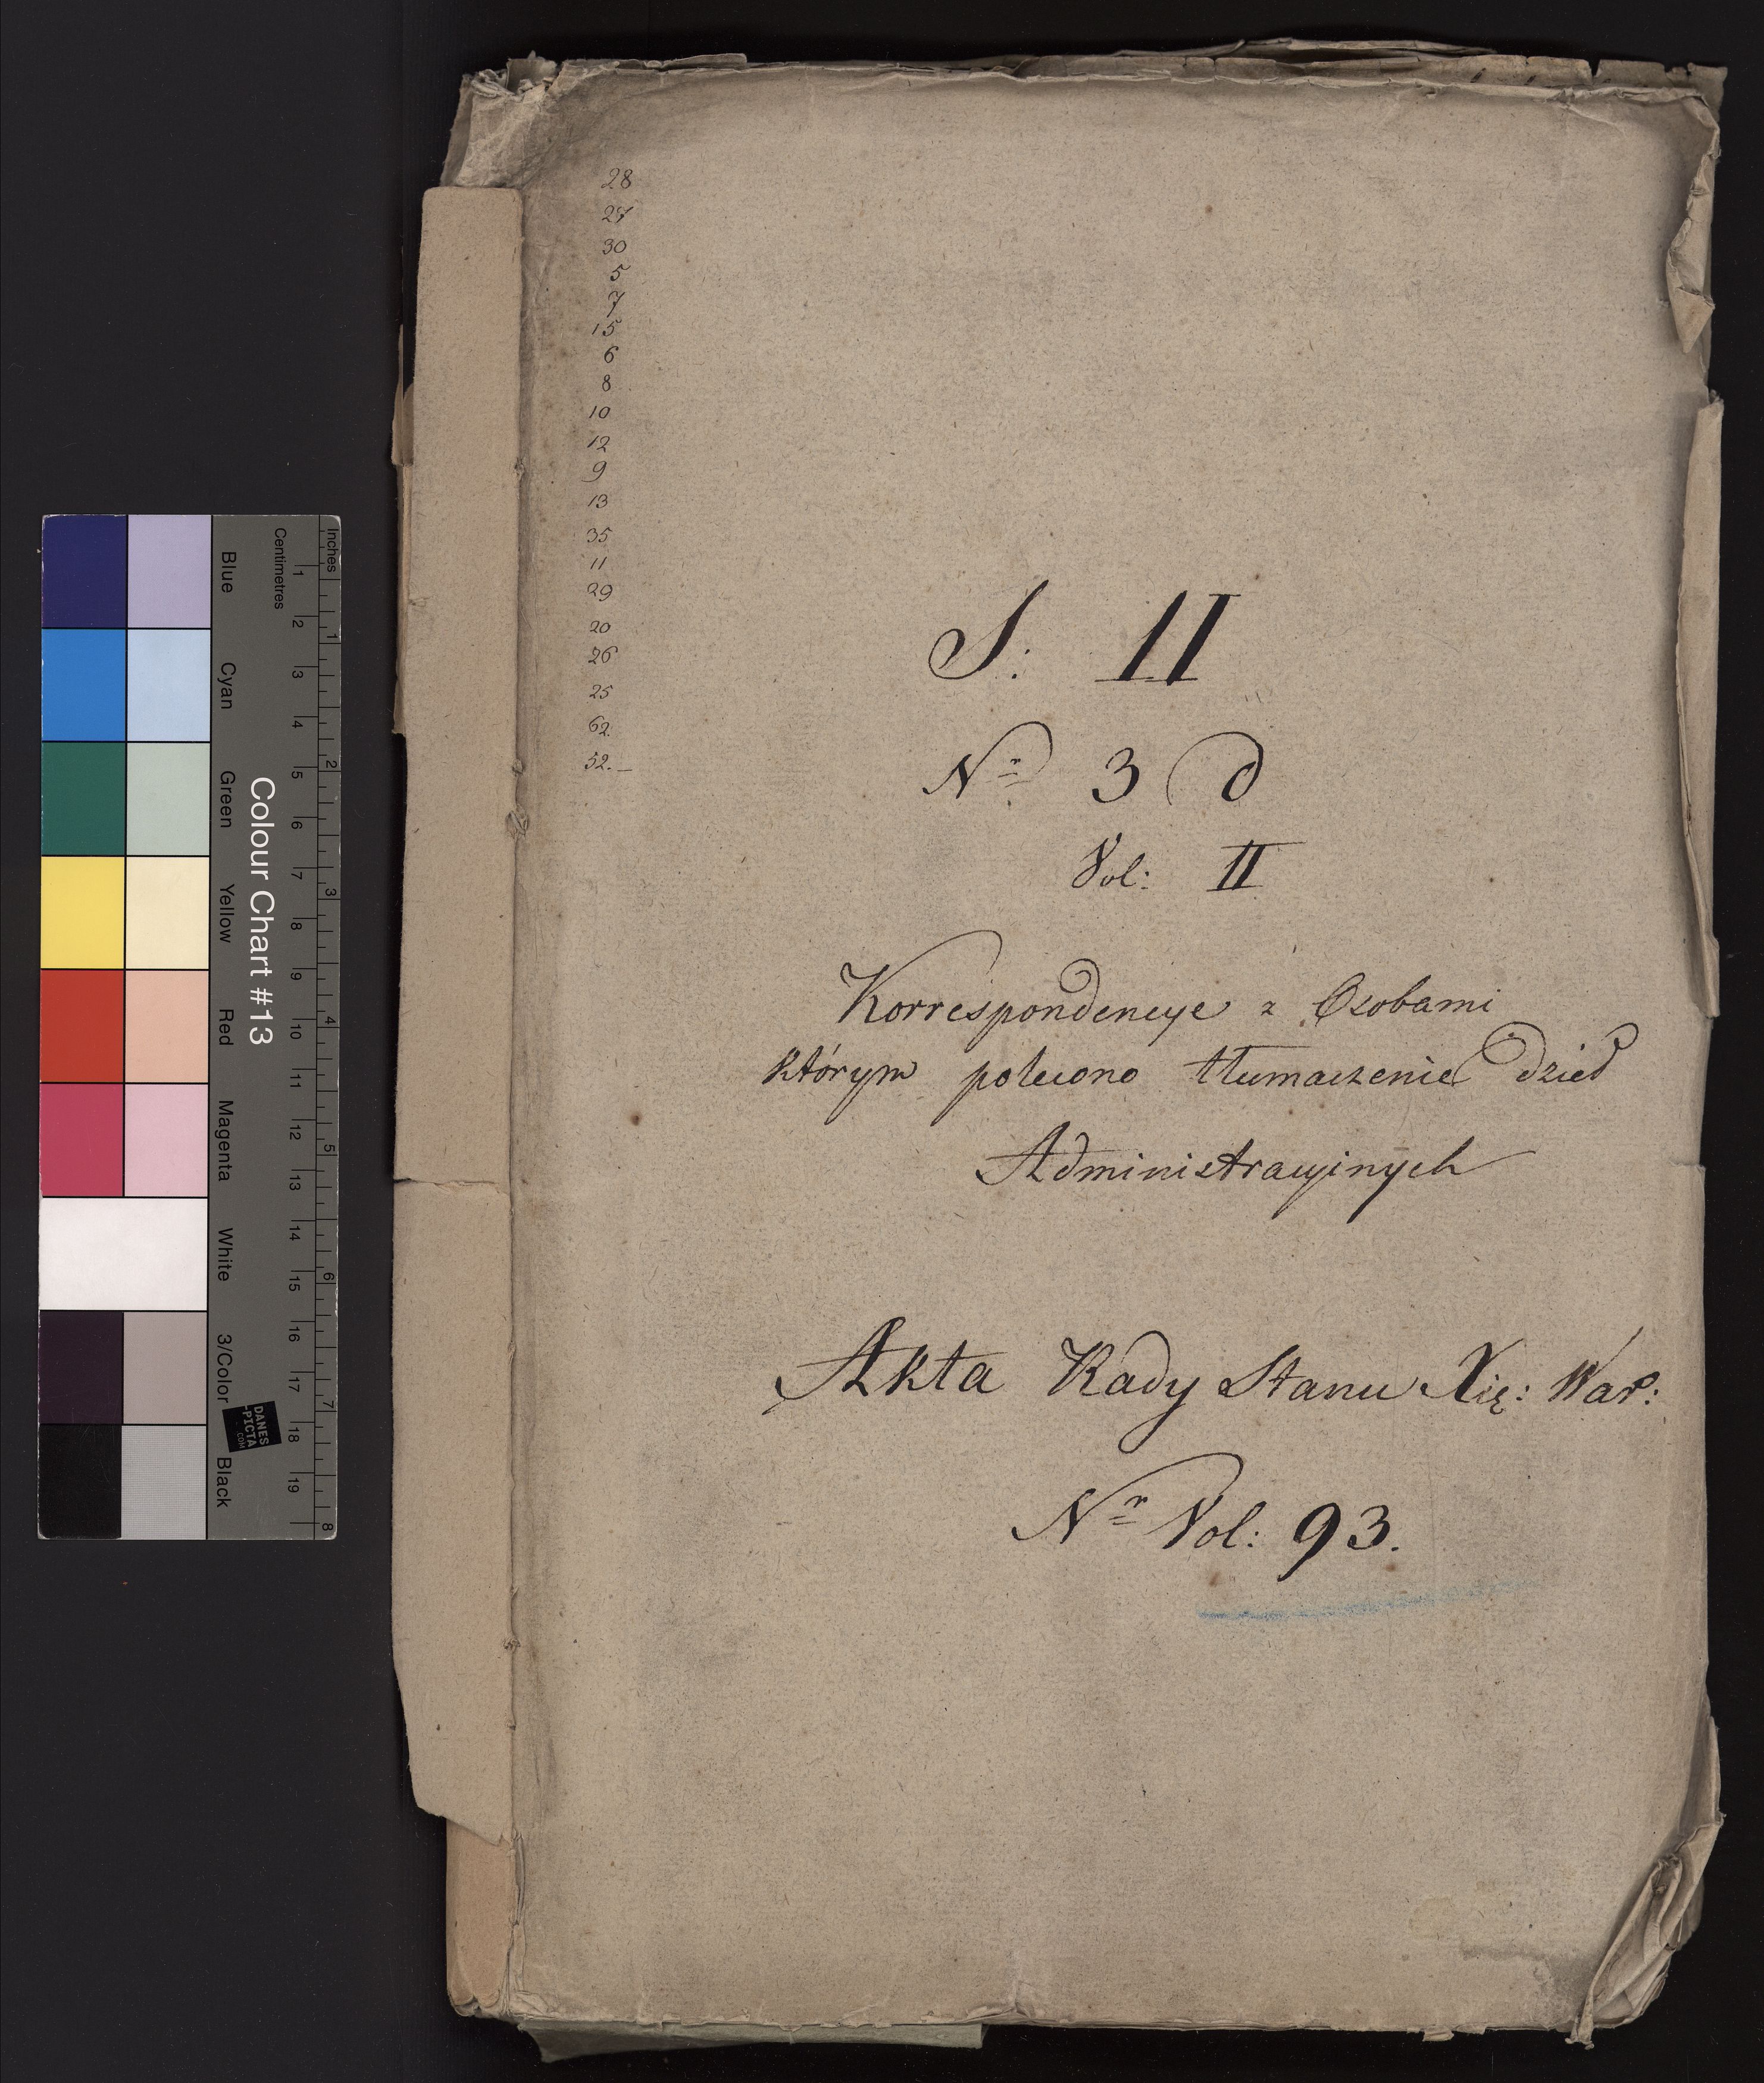 28
27
30
5
7
15
6
8
10
12
9
13
35
11
29
20
26
25
62.
52.—
S: II
Nr 3 d
Vol: II
Korrespondencye z Osobami
którym polecono tłumaczenie dzieł
Administracyinych
Akta Rady Stanu Xię: War:
Nr Vol: 93.
Colour Chart #13
Blue
Cyan
Green
Yellow
Red
Magenta
White
3/Color
Black
Centimetres
1 2 3 4 5 6 7 8 9 10 11 12 13 14 15 16 17 18 19
Inches
1 2 3 4 5 6 7 8
DANES
-PICTA
.COM